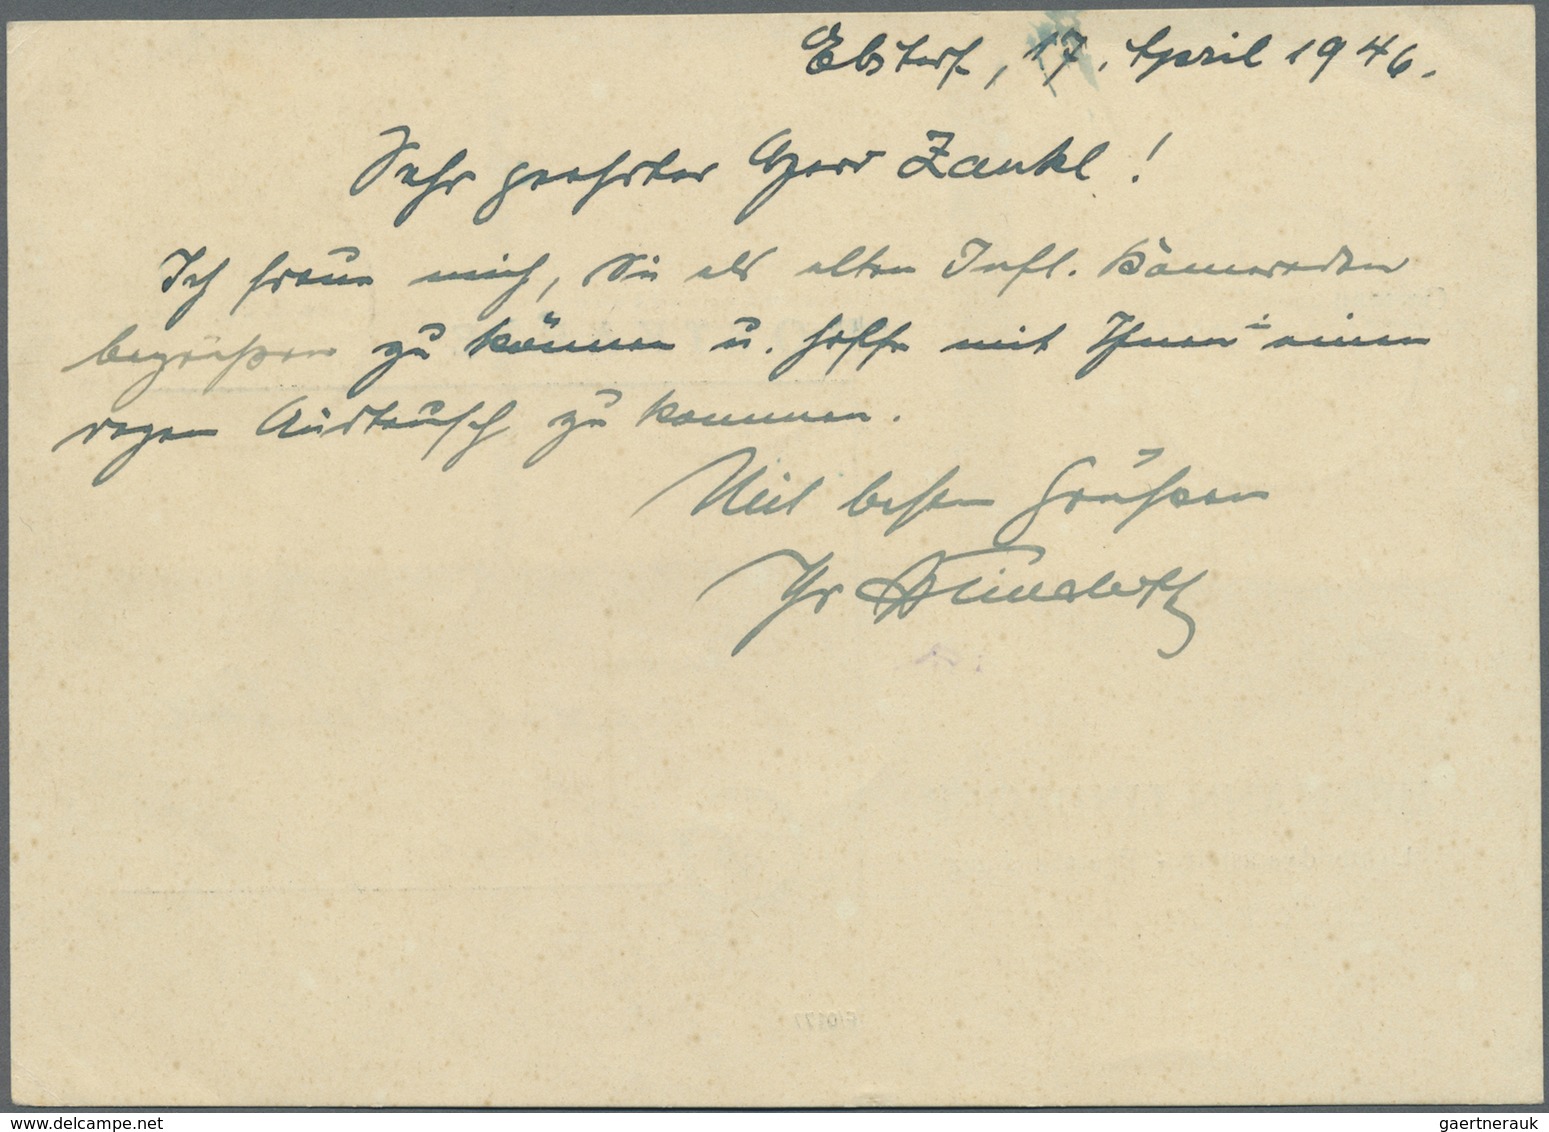 Ebstorf, 17. April 1946.
Sehr geehrter Herr Zankl!
Ich freue mich, Sie als alten Infl. Kameraden
begrüßen zu können u. hoffe mit Ihnen einen
regen Austausch zu kommen.
Mit besten Grüßen
Ihr
gaertnerauk